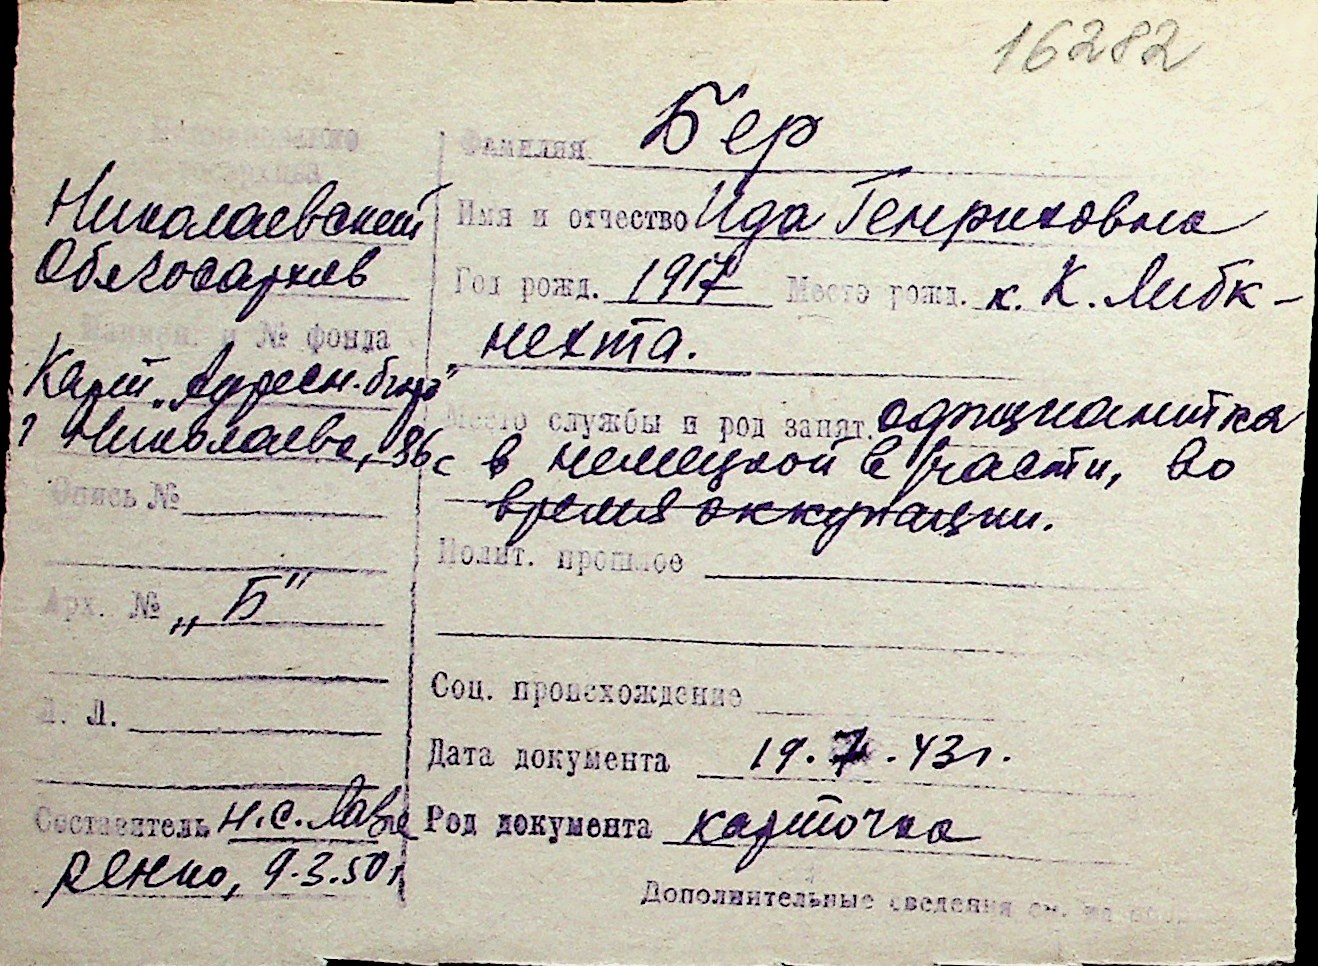 16282
Фамилия Бер
Николаевский
Облгосархив
Имя и отчество Ида Генриховна
Год рожд. 1917 Место рожд. к. К. Либк-
нехта.
Наимен. и № фонда
Карт. „Адресн. бюро"
г Николаева,
Место службы и род занят. официантка
в немецкой в/части, во
время оккупации.
Опись №
Полит. прошлое
Арх. № „Б"
Соц. происхождение
Л. Л.
Дата документа 19. . 43г.
Составитель Н.С. Лавре
ренко, 9.3.50г
Род документа карточка
Дополнительные сведения см. на